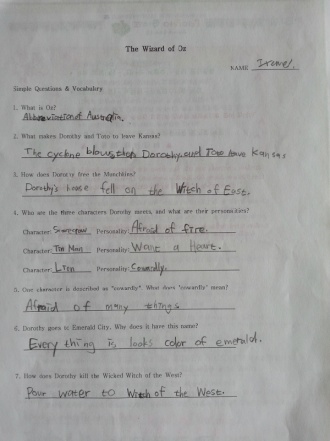 The Wizard of Oz
NAME
Simple Questions & Vocabulary
1. What is Oz?
Abbreviation of Australia.
2. What makes Dorothy and Toto to leave Kansas?
The cyclone blows then Dorothy and Toto leave Kansas
3. How does Dorothy free the Munchkins?
Dorothy's house fell on the Witch of East.
4. Who are the three characters Dorothy meets, and what are their personalities?
Character: Scarecrow Personality: Afraid of fire.
Character: Tin Man Personality: Want a Heart.
Character: Lion Personality: Cowardly.
5. One character is described as "cowardly". What does "cowardly" mean?
Afraid of many things
6. Dorothy goes to Emerald City. Why does it have this name?
Every thing is looks color of emerald.
7. How does Dorothy kill the Wicked Witch of the West?
Pour water to Witch of the West.